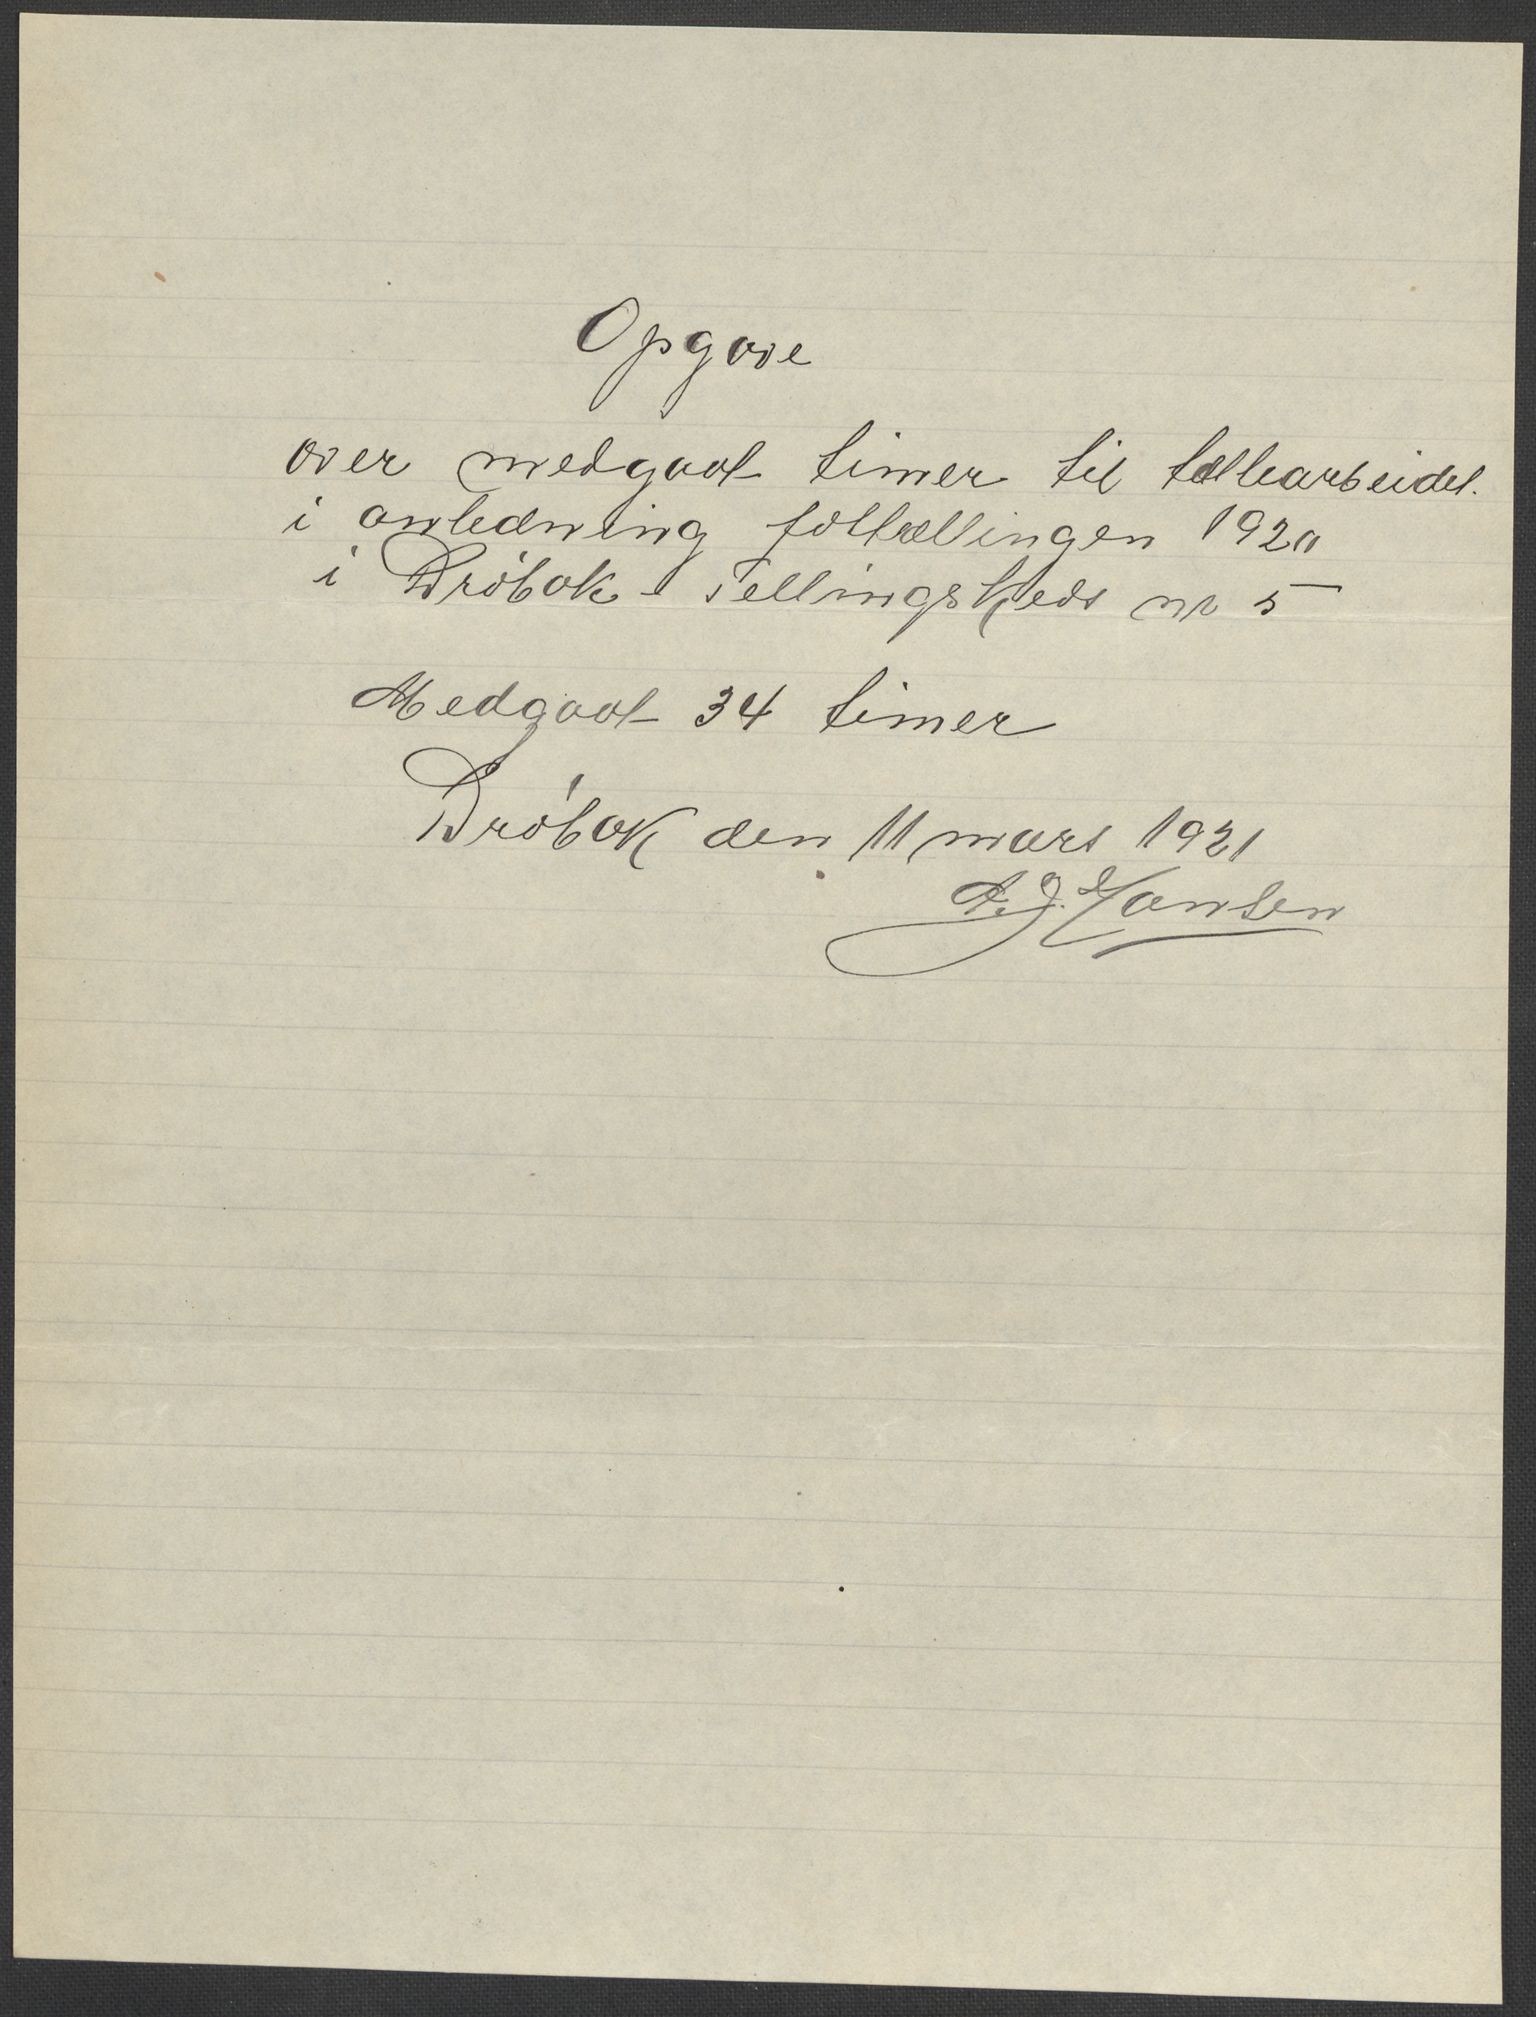 Opgave
over medgaat timer til tellearbeidet.
i anledning folketællingen 1920
i Drøbak Tellingskreds nr 5
Medgaat 34 timer
Drøbak den 11 mars 1921
A. J. Hansen